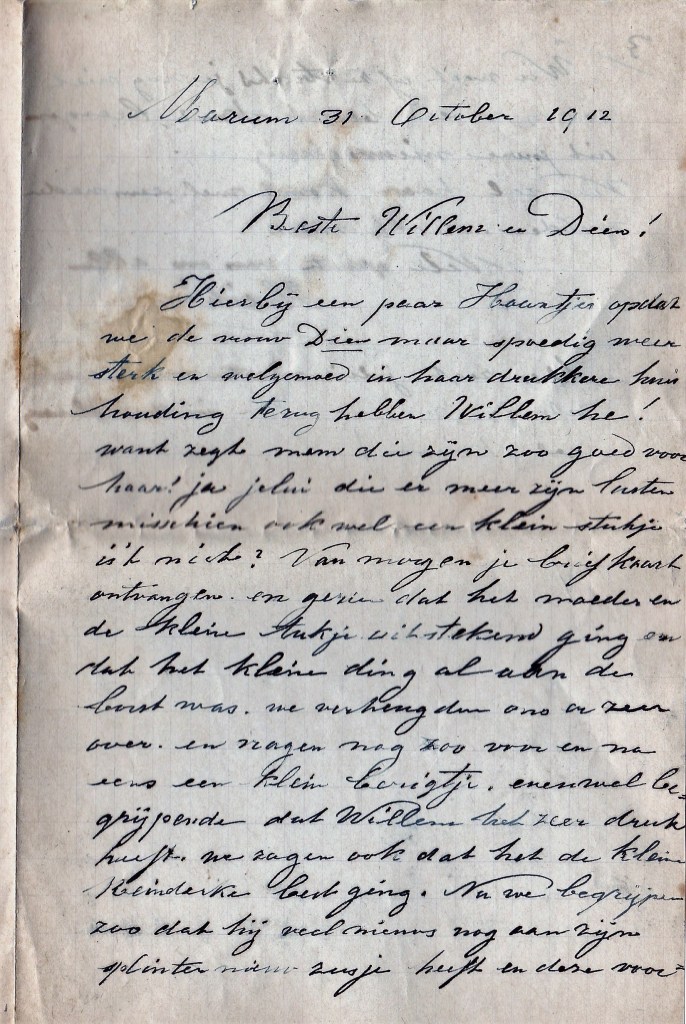 Marum 31 October 1912
Beste Willem en Dien!
Hierbij een paar Haantjes opdat
we de vrouw Dien maar spoedig weer
sterk en welgemoed in haar drukkere huis
houding terug hebben Willem he!
want zegt mem die zijn zoo goed voor
haar! ja jelui die er meer zijn lusten
misschien ook wel een klein stukje
is't niet? Van morgen je briefkaart
ontvangen. en gezien dat het moeder en
de kleine stukje uitstekend ging en
dat het kleine ding al aan de
borst was. we verheugden ons er zeer
over. en vragen nog zoo voor en na
eens een klein berigtje. evenwel be=
grijpende dat Willem het zeer druk
heeft. we zagen ook dat het de kleine
best ging. Nu we begrijpen
zoo dat hij veel nieuws nog aan zijn
splinter nieuw zusje heeft en deze voor=